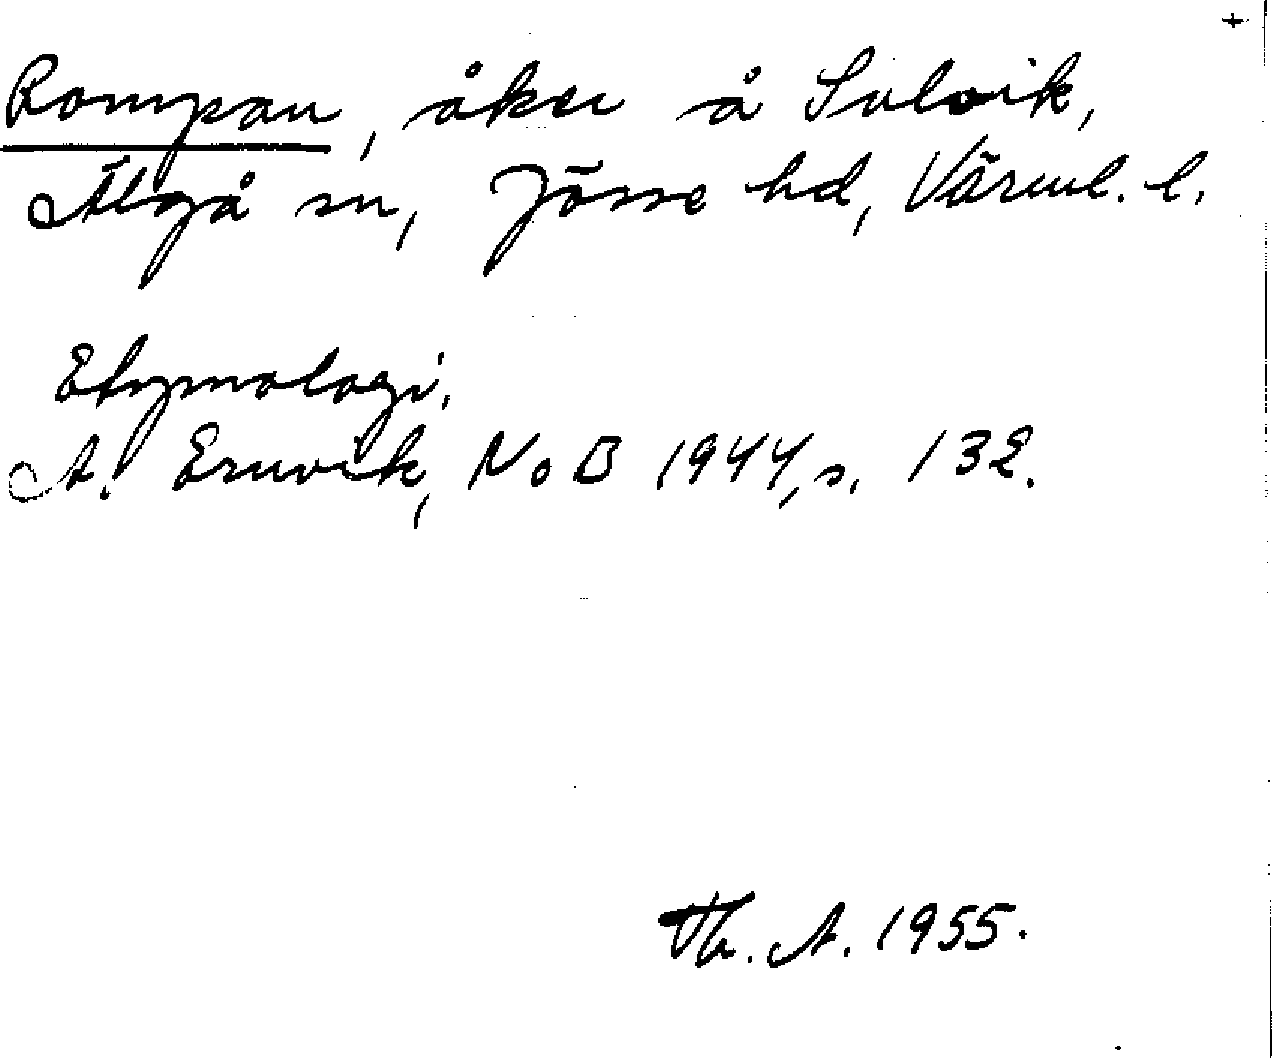 +
Rompan, åker å Sulvik,
Älgå sn, Jösse hd, Värml. l.
Etymologi.
A. Ernvik, NoB 1944, s. 132.
Th. A. 1955.